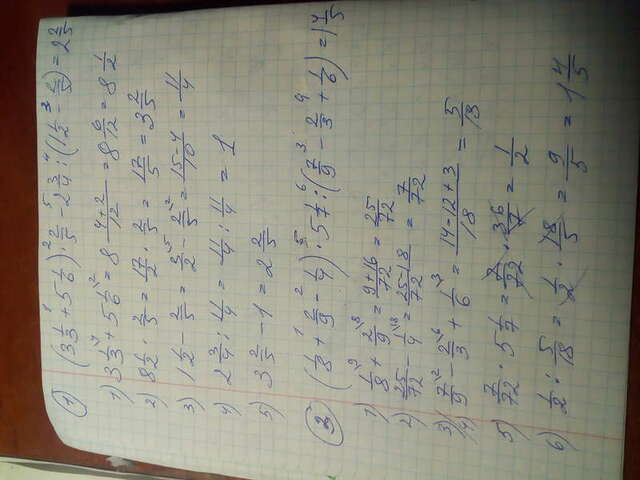 1) (3 1/3 + 5 1/6) · 2/5 - 2 3/4 : ((1 1/2 - 2/5) = 2 2/5
1) 3 1/3 + 5 1/6 = 8 4+2/12 = 8 6/12 = 8 1/2
2) 8 1/2 · 2/5 = 17/2 · 2/5 = 17/5 = 3 2/5
3) 1 1/2 - 2/5 = 3/2 - 2/5 = 15-4/10 = 11/4
4) 2 3/4 : 11/4 = 11/4 : 11/4 = 1
5) 3 2/5 - 1 = 2 2/5
2) (1/8 + 2/9 - 1/4) · 5 1/7 : (7/9 - 2/3 + 1/6) = 1 4/5
1) 1/8 + 2/9 = 9+16/72 = 25/72
2) 25/72 - 1/4 = 25-18/72 = 7/72
3)/4) 7/9 - 2/3 + 1/6 = 14-12+3/18 = 5/13
5) 7/72 · 5 1/7 = 7/72 · 36/7 = 1/2
6) 1/2 : 5/18 = 1/2 · 18/5 = 9/5 = 1 4/5